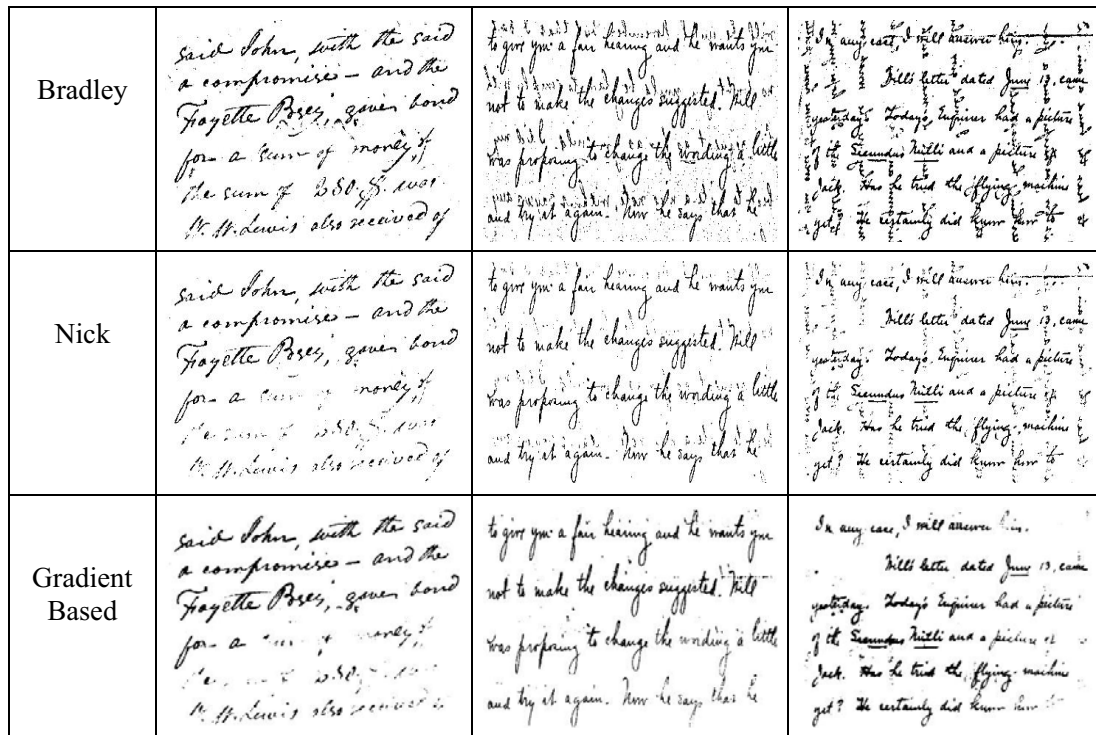 Bradley
said John, with the said
a compromise – and the
Fayette Posey, gaves bond
for a sum of money, of
the sum of 250.
W. W. Lewis also received of
to give you a fair hearing and he wants you
not to make the changes suggested. Will
was proposing to change the wording a little
and try it again. Now he says that he
In any case, I will answer him.
Will's letter dated June 13, came
yesterday. Today's Enquirer had a picture
of the Secundus Nulli and a picture of
Jack. Has he tried the flying machine
yet? He certainly did know how to
Nick
said John, with the said
a compromise – and the
Fayette Posey, gaves bond
for a sum of money, of
the sum of 250.
W. W. Lewis also received of
to give you a fair hearing and he wants you
not to make the changes suggested. Will
was proposing to change the wording a little
and try it again. Now he says that he
In any case, I will answer him.
Will's letter dated June 13, came
yesterday. Today's Enquirer had a picture
of the Secundus Nulli and a picture of
Jack. Has he tried the flying machine
yet? He certainly did know how to
Gradient
Based
said John, with the said
a compromise – and the
Fayette Posey, gaves bond
for a money
250
W. W. Lewis also received
to give you a fair hearing and he wants you
not to make the changes suggested. Will
was proposing to change the wording a little
and try it again. Now he says that he
In any case, I will answer him.
Will's letter dated June 13, came
yesterday. Today's Enquirer had a picture
of the Secundus Nulli and a picture of
Jack. Has he tried the flying machine
yet? He certainly did know how to